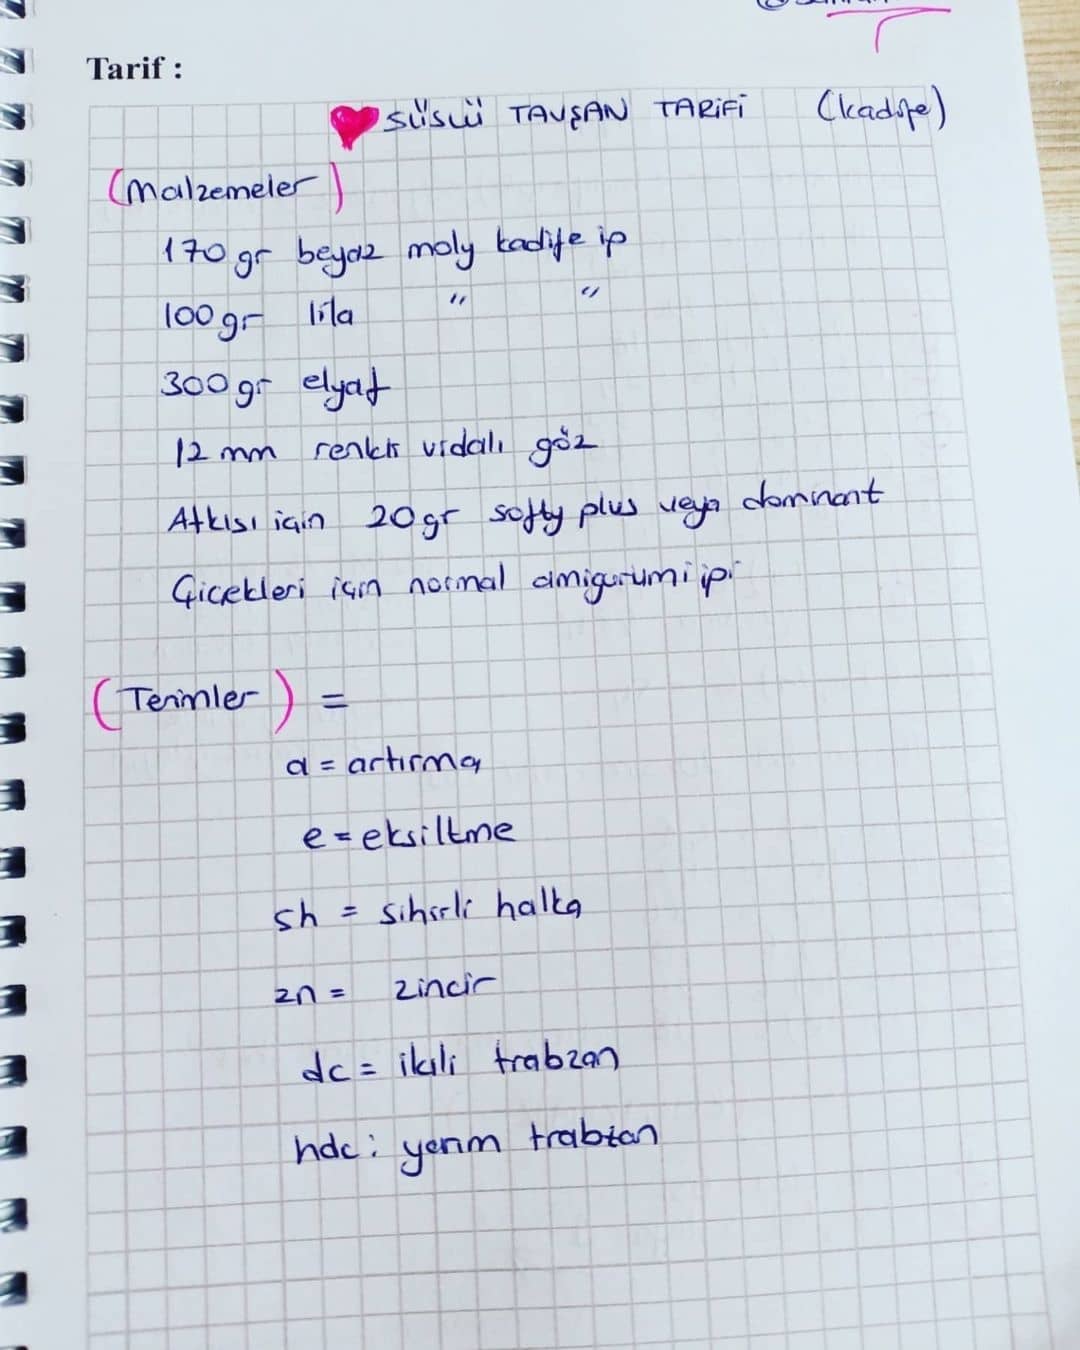 Tarif :
SÜSLÜ TAVŞAN TARİFİ (kadife)
(Malzemeler)
170 gr beyaz moly kadife ip
100 gr lila " "
300 gr elyaf
12 mm renkli vidalı göz
Atkısı için 20 gr softy plus veya dominant
Çiçekleri için normal amigurumi ipi
(Terimler) =
a = artırma
e = eksiltme
sh = sihirli halka
zn = zincir
dc = ikili trabzan
hdc : yarım trabzan